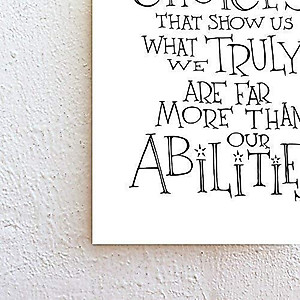 CHOICES
THAT SHOW US
WHAT
WE TRULY
ARE FAR
MORE THAN
OUR
ABILITIES